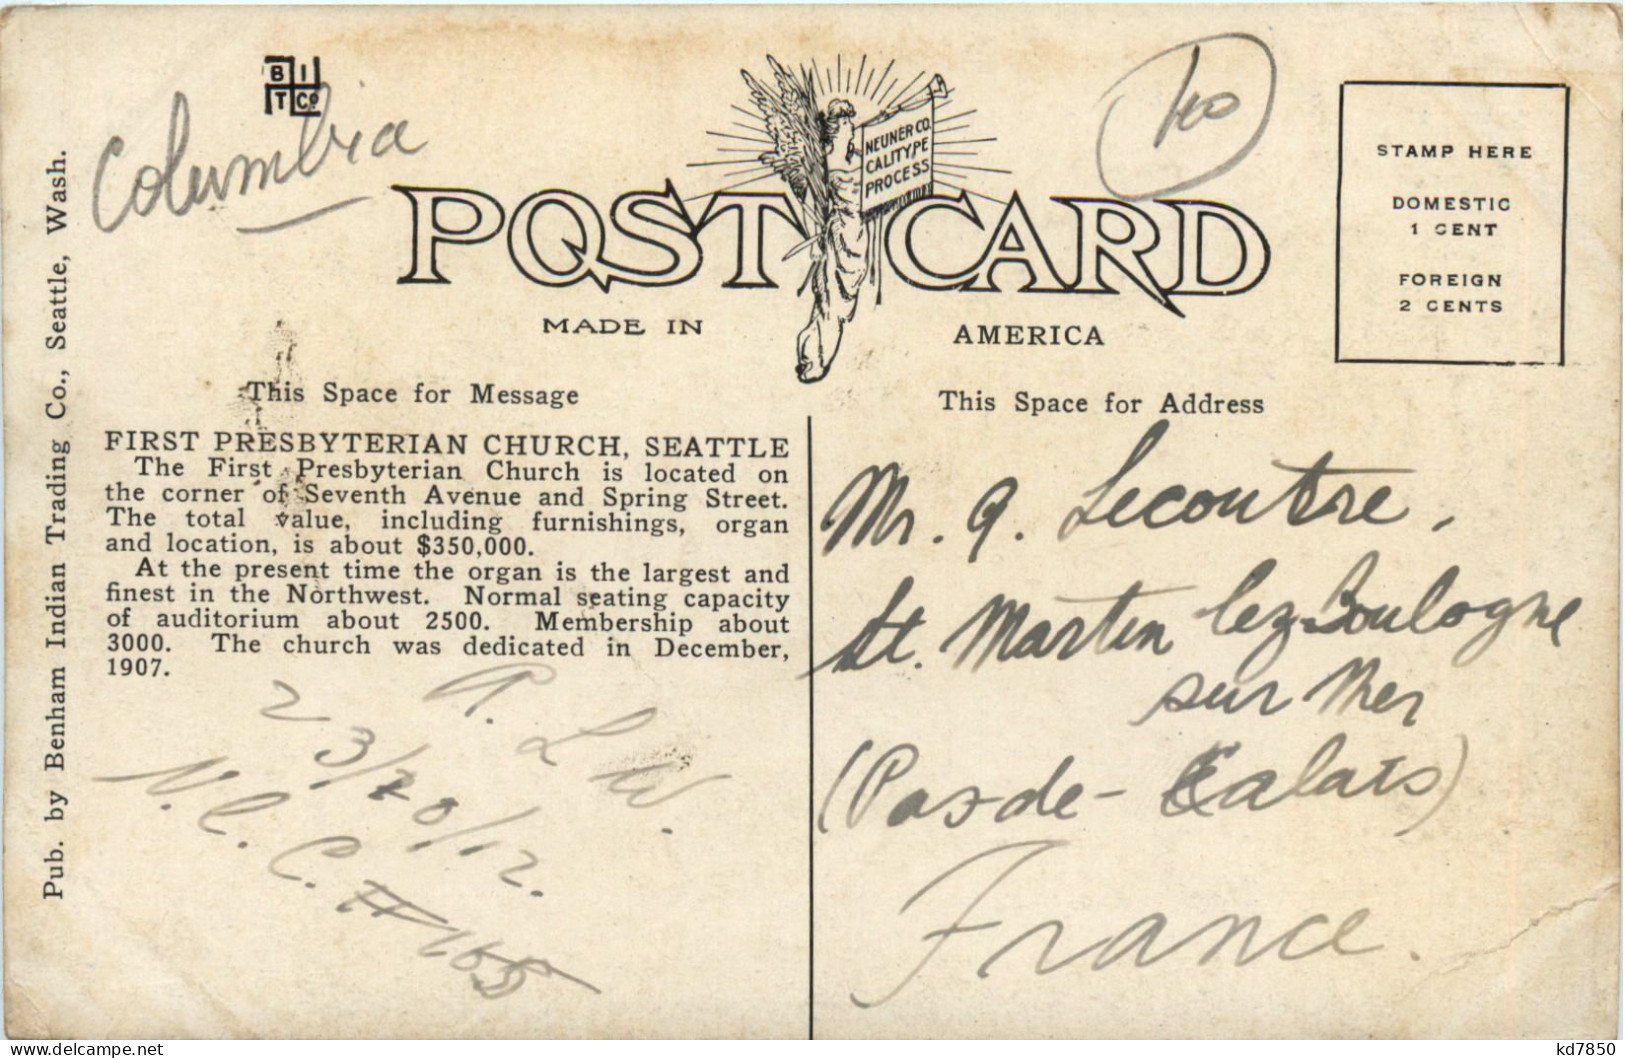 B I
T Co
Columbia
NEUNER CO.
CALITYPE
PROCESS
POST CARD
MADE IN AMERICA
STAMP HERE
DOMESTIC
1 CENT
FOREIGN
2 CENTS
Pub. by Benham Indian Trading Co., Seattle, Wash.
This Space for Message
FIRST PRESBYTERIAN CHURCH, SEATTLE
The First Presbyterian Church is located on
the corner of Seventh Avenue and Spring Street.
The total value, including furnishings, organ
and location, is about $350,000.
At the present time the organ is the largest and
finest in the Northwest. Normal seating capacity
of auditorium about 2500. Membership about
3000. The church was dedicated in December,
1907.
A. L. W.
23/20/12.
V. C. C. # 165
This Space for Address
Mr. G. Lecoutre,
St. Martin lez-Boulogne
sur Mer
(Pas-de-Calais)
France.
kd7850